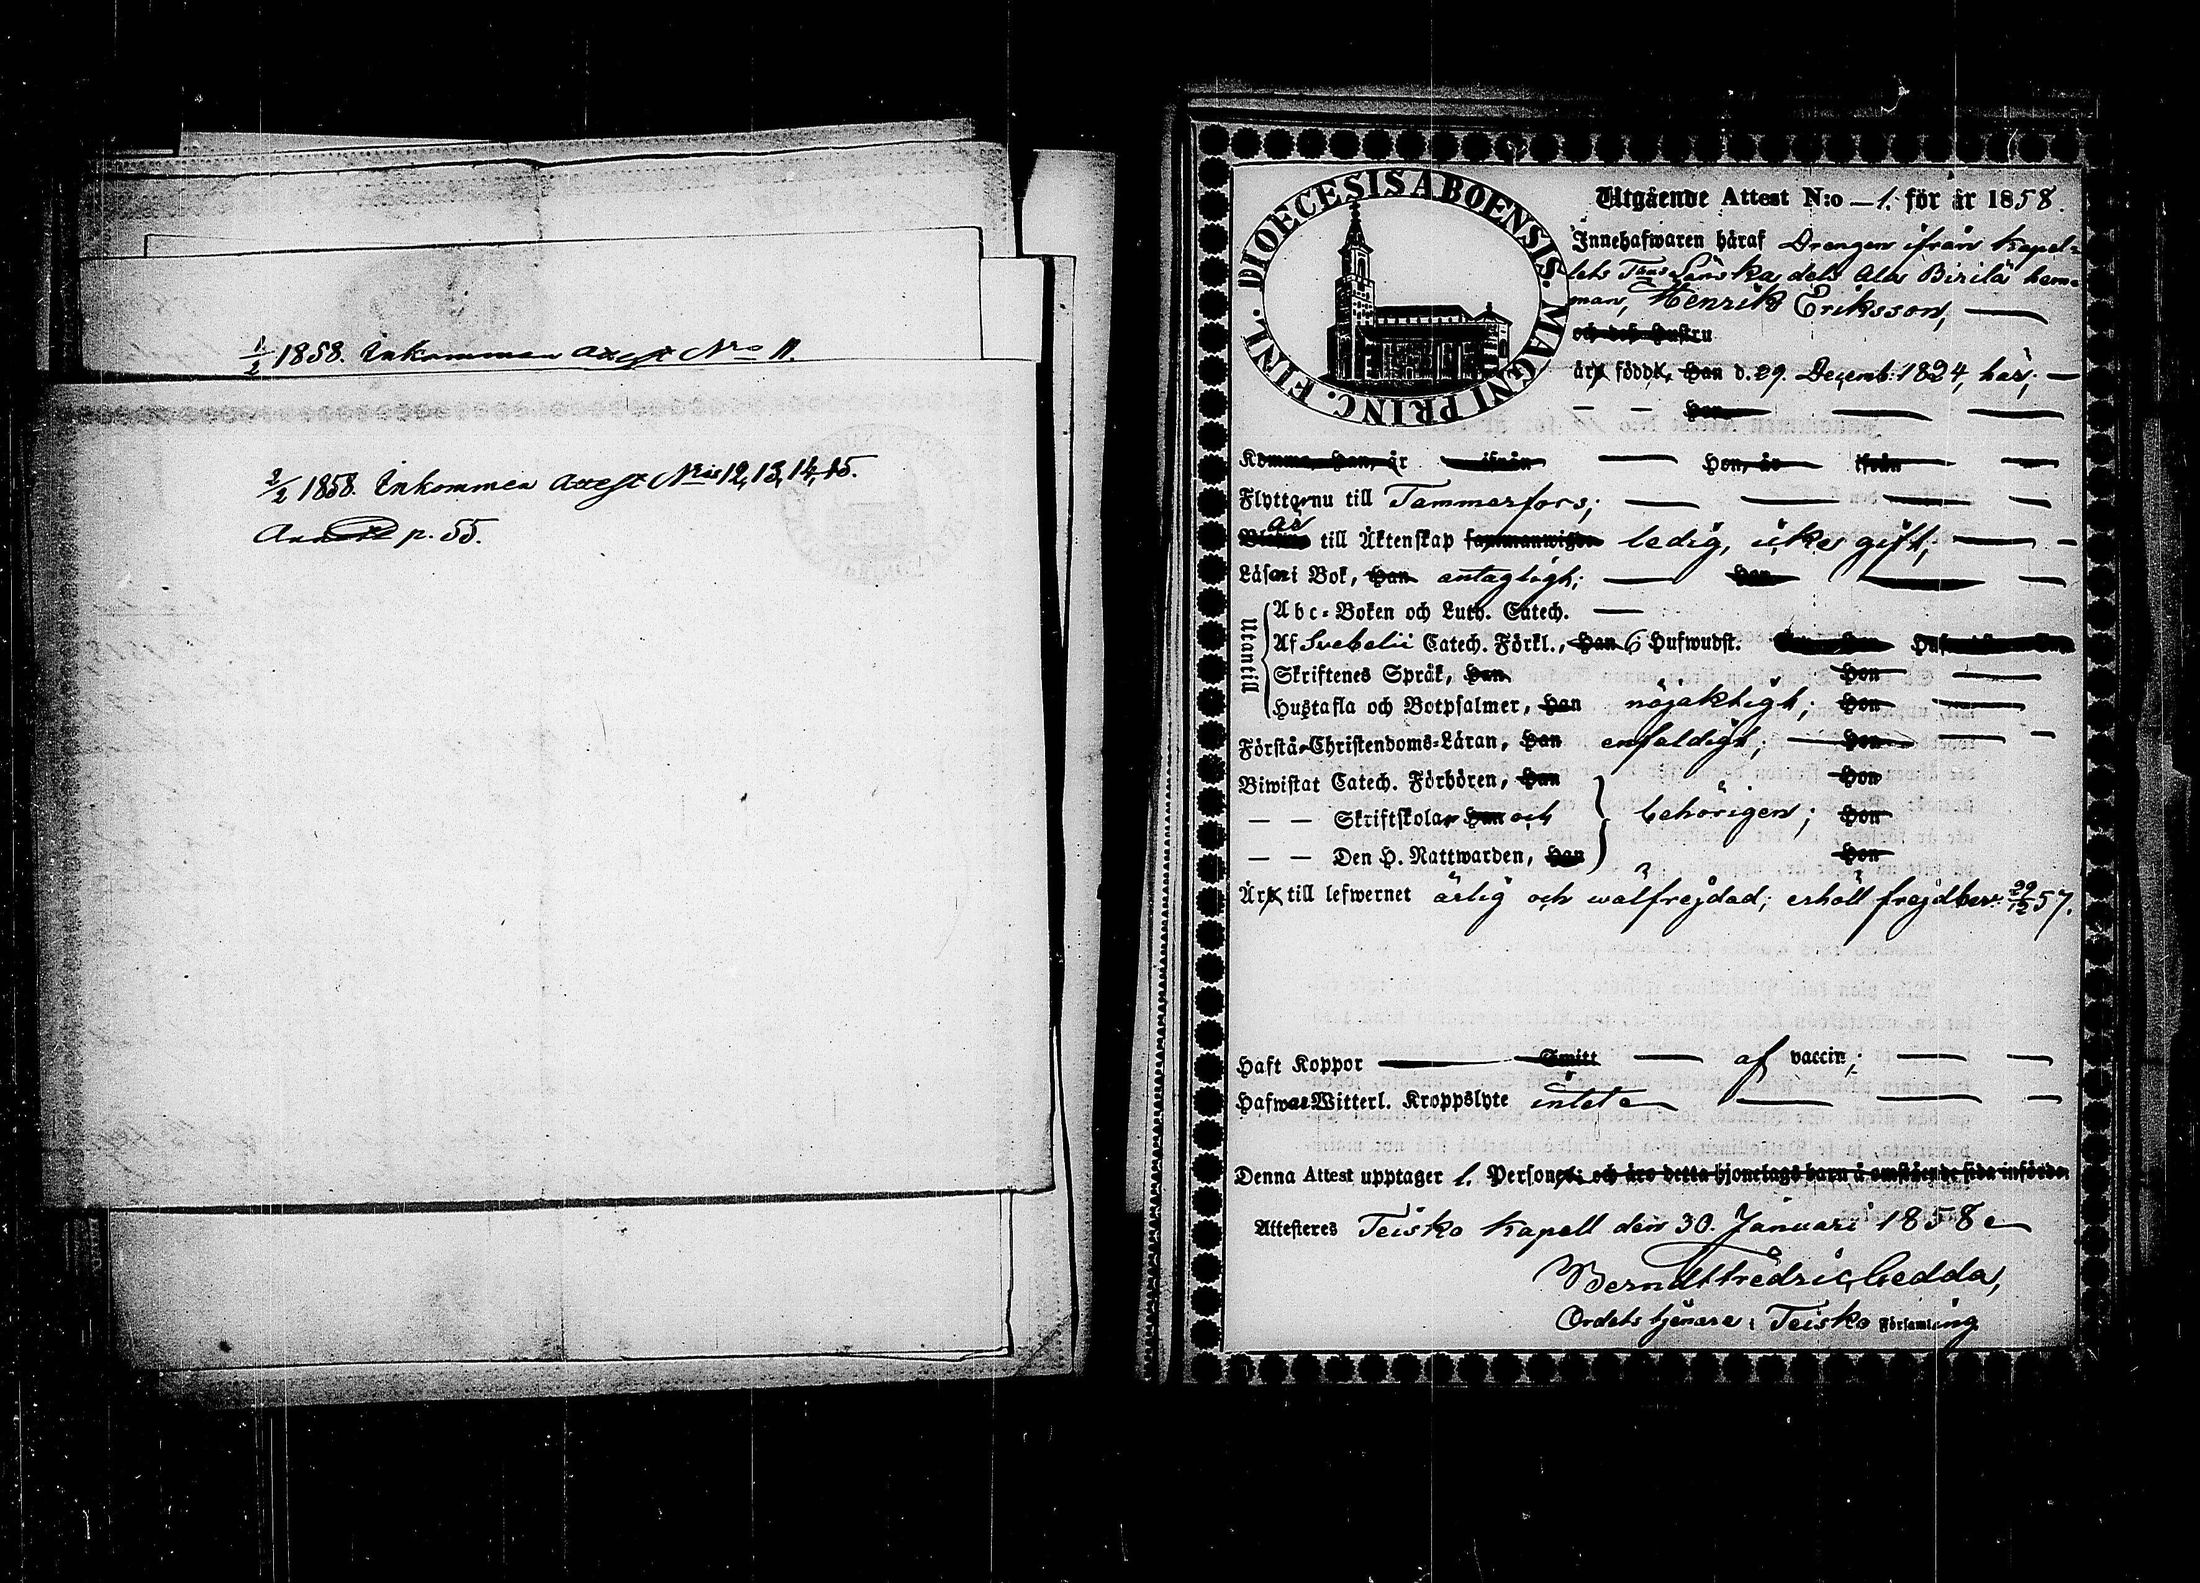 1/2 1858. Inkommen attest Nro 11.
2/2 1858. Inkommen attest Nris 12, 13, 14, 15.
p. 55.
DIOECESIS ABOENSIS. MAGNI PRINC. FINL.
Utgående Attest N:o 1. för år 1858.
Innehafwaren häraf Drengen ifrån Kapel-
lets Länska dels Ala Birilä hem-
man, Henrik Eriksson,
och des hustru
är född, Han d. 29. Decemb: 1824, här;
Hon
Komma, Han, är ifrån Hon, är ifrån
Flyttar nu till Tammerfors;
är till Äktenskap sammanwigde ledig, icke gift;
Läser i Bok, Han antagligt; Hon
Utantill
Abc-Boken och Luth. Catech.
Af Svebelii Catech. Förkl., Han 6 Hufwudst.
Skriftenes Språk, Han Hon
Hustafla och Botpsalmer, Han nöjaktigt; Hon
Förstår Christendoms-Läran, Han enfaldigt; Hon
Biwistat Catech. Förhören, Han Hon
— — Skriftskolar Han och behörigen; Hon
— — Den H. Nattwarden, Han Hon
Är till lefwernet ärlig och wälfrejdad; erhöll frejdbev. 29/12 57.
Haft Koppor Smitt af vaccin;
Hafwer Witterl. Kroppslyte intet
Denna Attest upptager 1. Person; och äro detta hjonelags barn å omstående sida införde.
Attesteres Teisko Kapell den 30. Januari 1858
Berndt Fredric Gedda,
Ordets tjenare i Teisko Församling